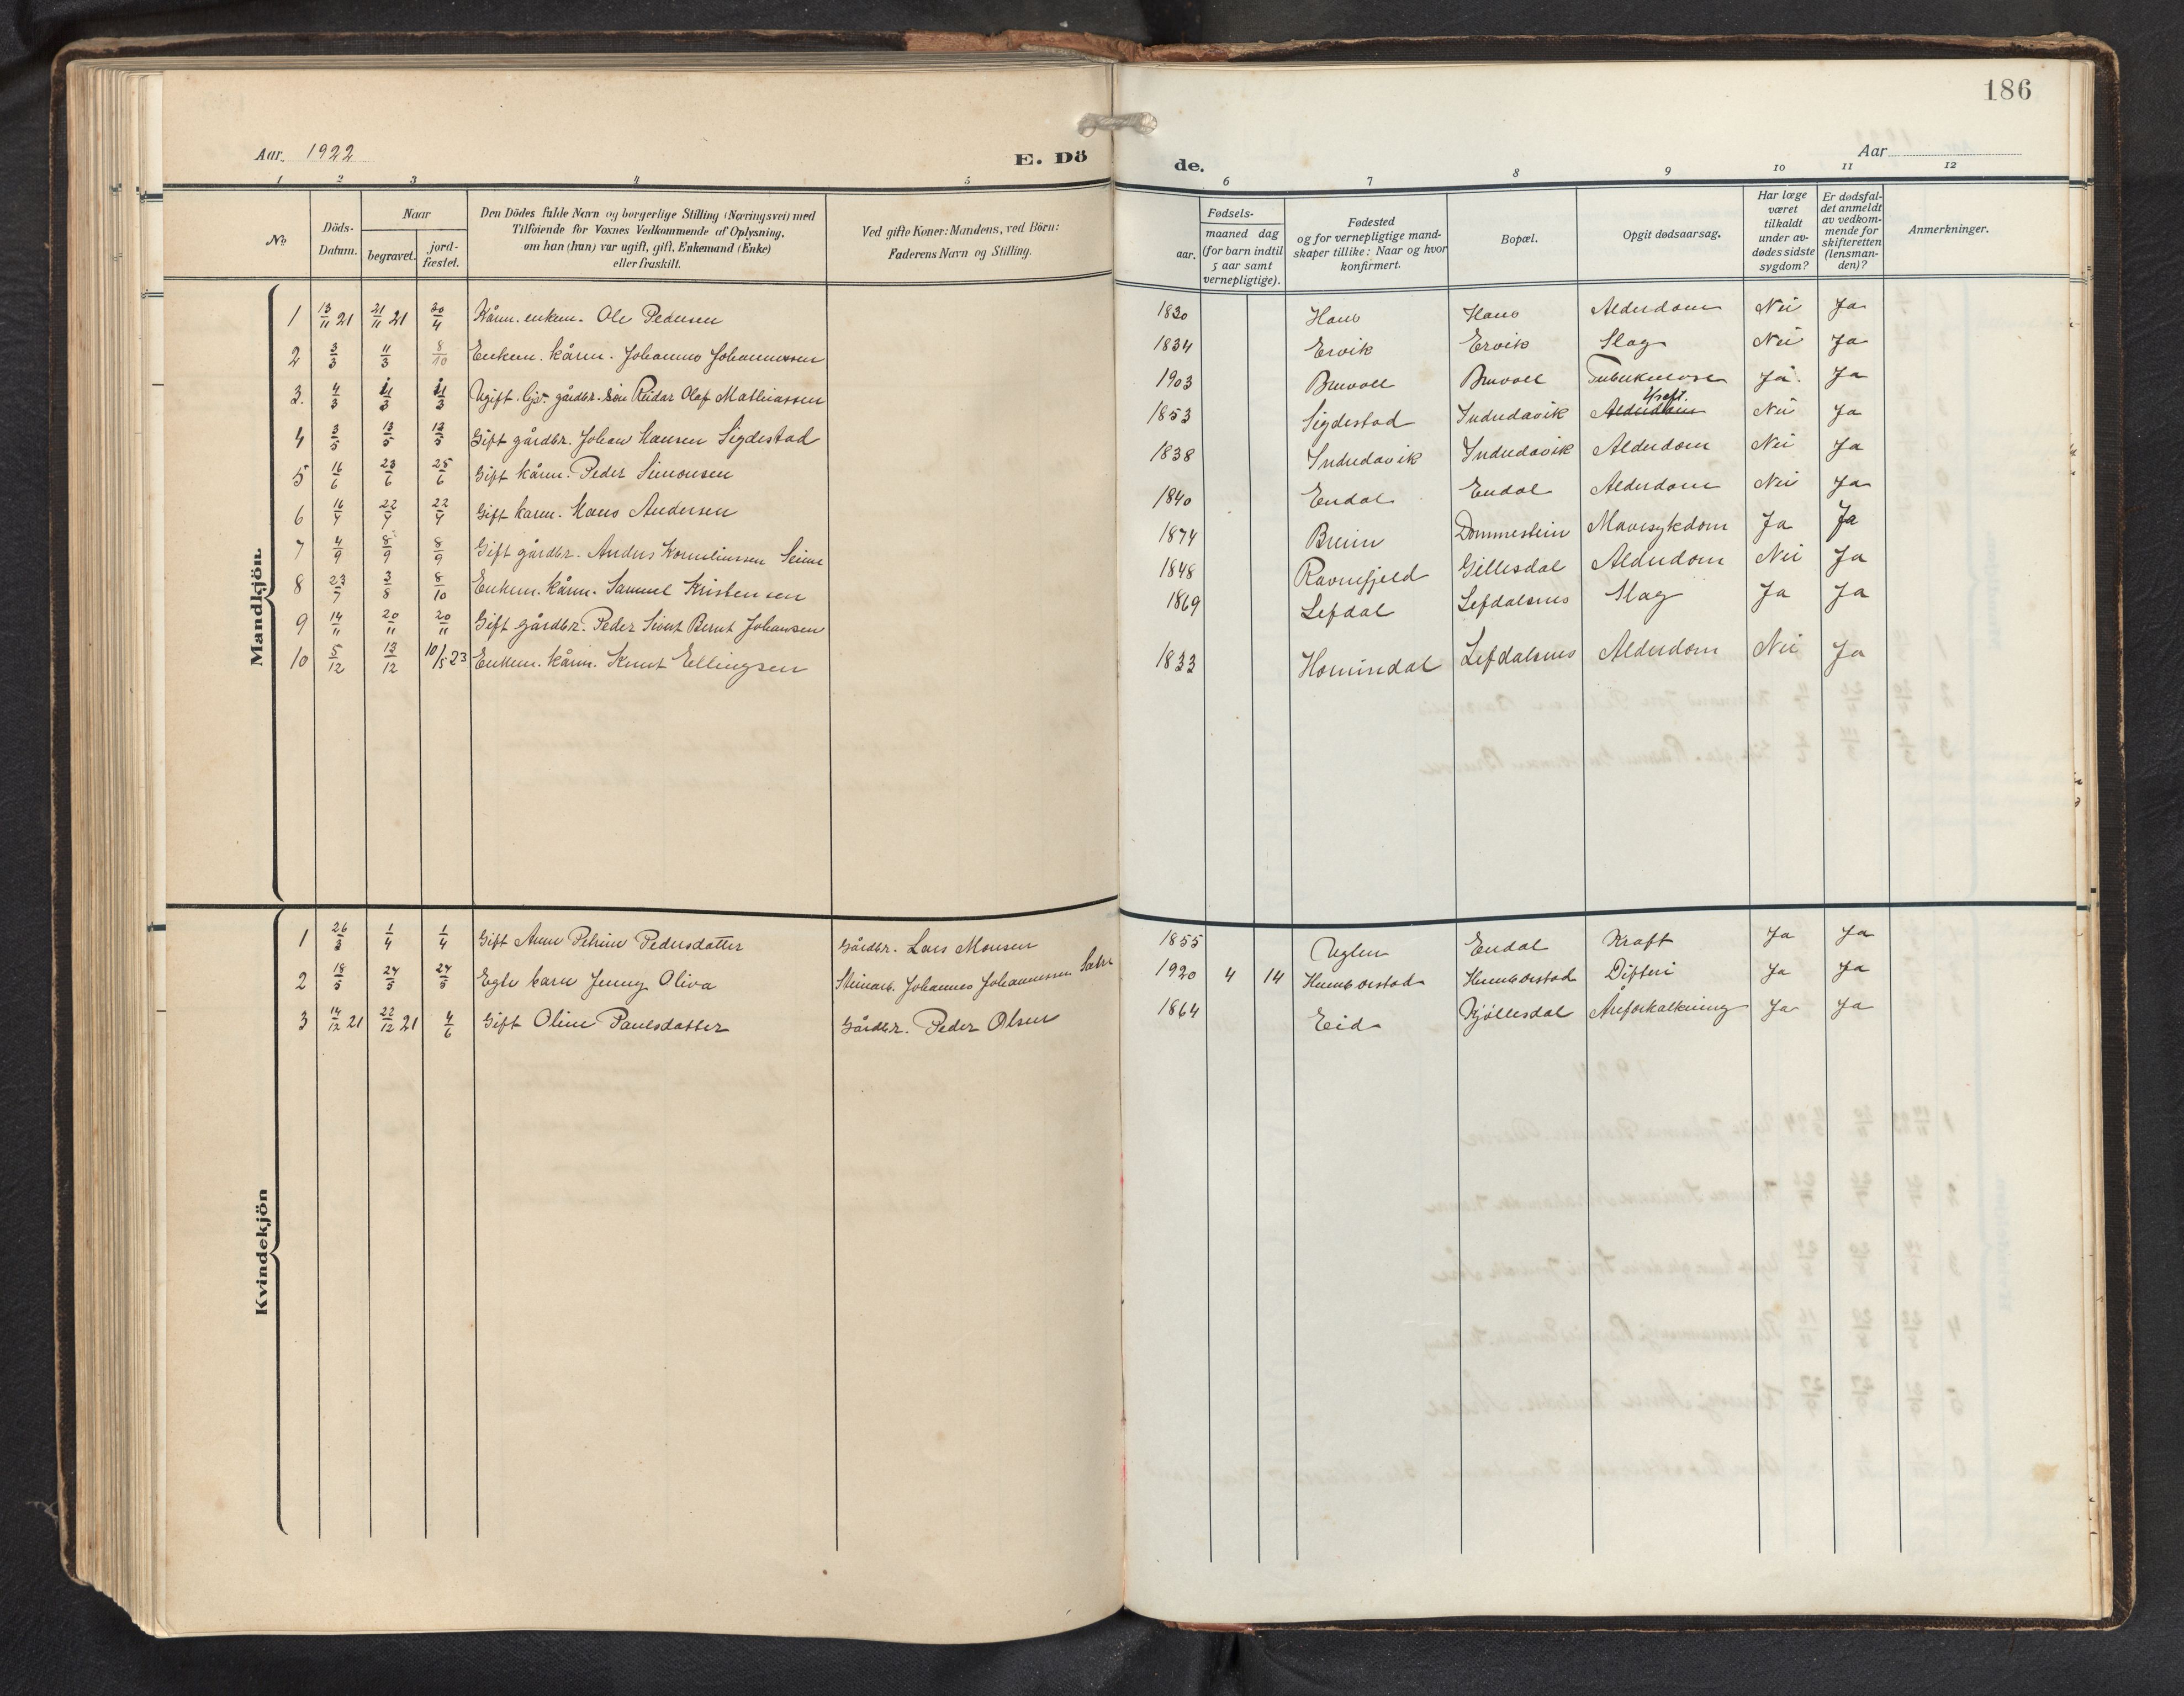 186
Aar. 1922
E. Dö
de.
Aar
1 2 3 4 5
6 7 8 9 10 11 12
No.
Döds-Datum.
Naar
begravet.
jord-fæstet.
Den Dödes fulde Navn og borgerlige Stilling (Næringsvei) med
Tilføiende for Voxnes Vedkommende af Oplysning,
om han (hun) var ugift, gift, Enkemand (Enke)
eller fraskilt.
Ved gifte Koner: Mandens, ved Börn:
Faderens Navn og Stilling.
Fødsels-
aar.
maaned dag
(for barn indtil
5 aar samt
vernepligtige).
Fødested
og for vernepligtige mand-
skaper tillike: Naar og hvor
konfirmert.
Bopæl.
Opgit dødsaarsag.
Har læge
været
tilkaldt
under av-
dødes sidste
sygdom?
Er dødsfal-
det anmeldt
av vedkom-
mende for
skifteretten
(lensman-
den)?
Anmerkninger.
Mandkjön.
1 13/11 21 21/11 21 30/4 Kårm. enkem. Ole Pedersen 1830 Haus Haus Alderdom Nei Ja
2 3/3 11/3 8/10 Enkem. kårm. Johannes Johannessen 1834 Ervik Ervik Slag Nei Ja
3. 4/3 11/3 11/3 Ugift. gårdbr. søn Reidar Olaf Mathiassen 1903 Bruvoll Bruvoll Tuberkulose Ja. Ja
4 3/5 13/5 13/5 Gift gårdbr. Johan Hansen Sigdestad 1853 Sigdestad Indredavik Alderdom Kræft. Nei Ja
5 16/6 23/6 25/6 Gift kårm. Peder Simonsen 1838 Indredavik Indredavik Alderdom Nei Ja
6 16/7 22/7 22/7 Gift karm. Hans Andersen 1840 Endal Endal Alderdom Nei Ja
7 4/9 8/9 8/9 Gift gårdbr. Anders Korneliussen Seime 1874 Breim Dommestein Mavesykdom Ja Ja
8 23/7 3/8 8/10 Enkem. kårm. Samuel Kristensen 1848 Ravnefjeld Gillesdal Alderdom Nei Ja
9 14/11 20/11 20/11 Gift gårdbr. Peder Sivert Bernt Johansen 1869 Lefdal Lefdalsnes Slag Ja Ja
10 5/12 13/12 10/5 23 Enkem. kårm. Knut Ellingsen 1833 Hornindal Lefdalsnes Alderdom Nei Ja
Kvindekjön
1 26/3 1/4 1/4 Gift Anne Petrine Pedersdatter Gårdbr. Lars Monsen 1855 Uglen Endal Kræft Ja Ja
2 18/5 24/5 24/5 Egte barn Jenny Oliva Steinarb. Johannes Johannessen 1920 4 14 Humborstad Humborstad Difteri Ja Ja
3 14/12 21 22/12 21 4/6 Gift Oline Paulsdatter Gårdbr. Peder Olsen 1864 Eid Kjøllesdal Åreforkalkning Ja Ja